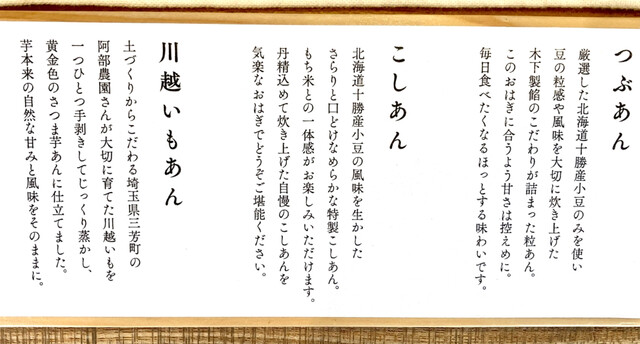 つぶあん
厳選した北海道十勝産小豆のみを使い
豆の粒感や風味を大切に炊き上げた
木下製餡のこだわりが詰まった粒あん。
このおはぎに合うよう甘さは控えめに。
毎日食べたくなるほっとする味わいです。
こしあん
北海道十勝産小豆の風味を生かした
さらりと口どけなめらかな特製こしあん。
もち米との一体感がお楽しみいただけます。
丹精込めて炊き上げた自慢のこしあんを
気楽なおはぎでどうぞご堪能ください。
川越いもあん
土づくりからこだわる埼玉県三芳町の
阿部農園さんが大切に育てた川越いもを
一つひとつ手剥きしてじっくり蒸かし、
黄金色のさつま芋あんに仕立てました。
芋本来の自然な甘みと風味をそのままに。